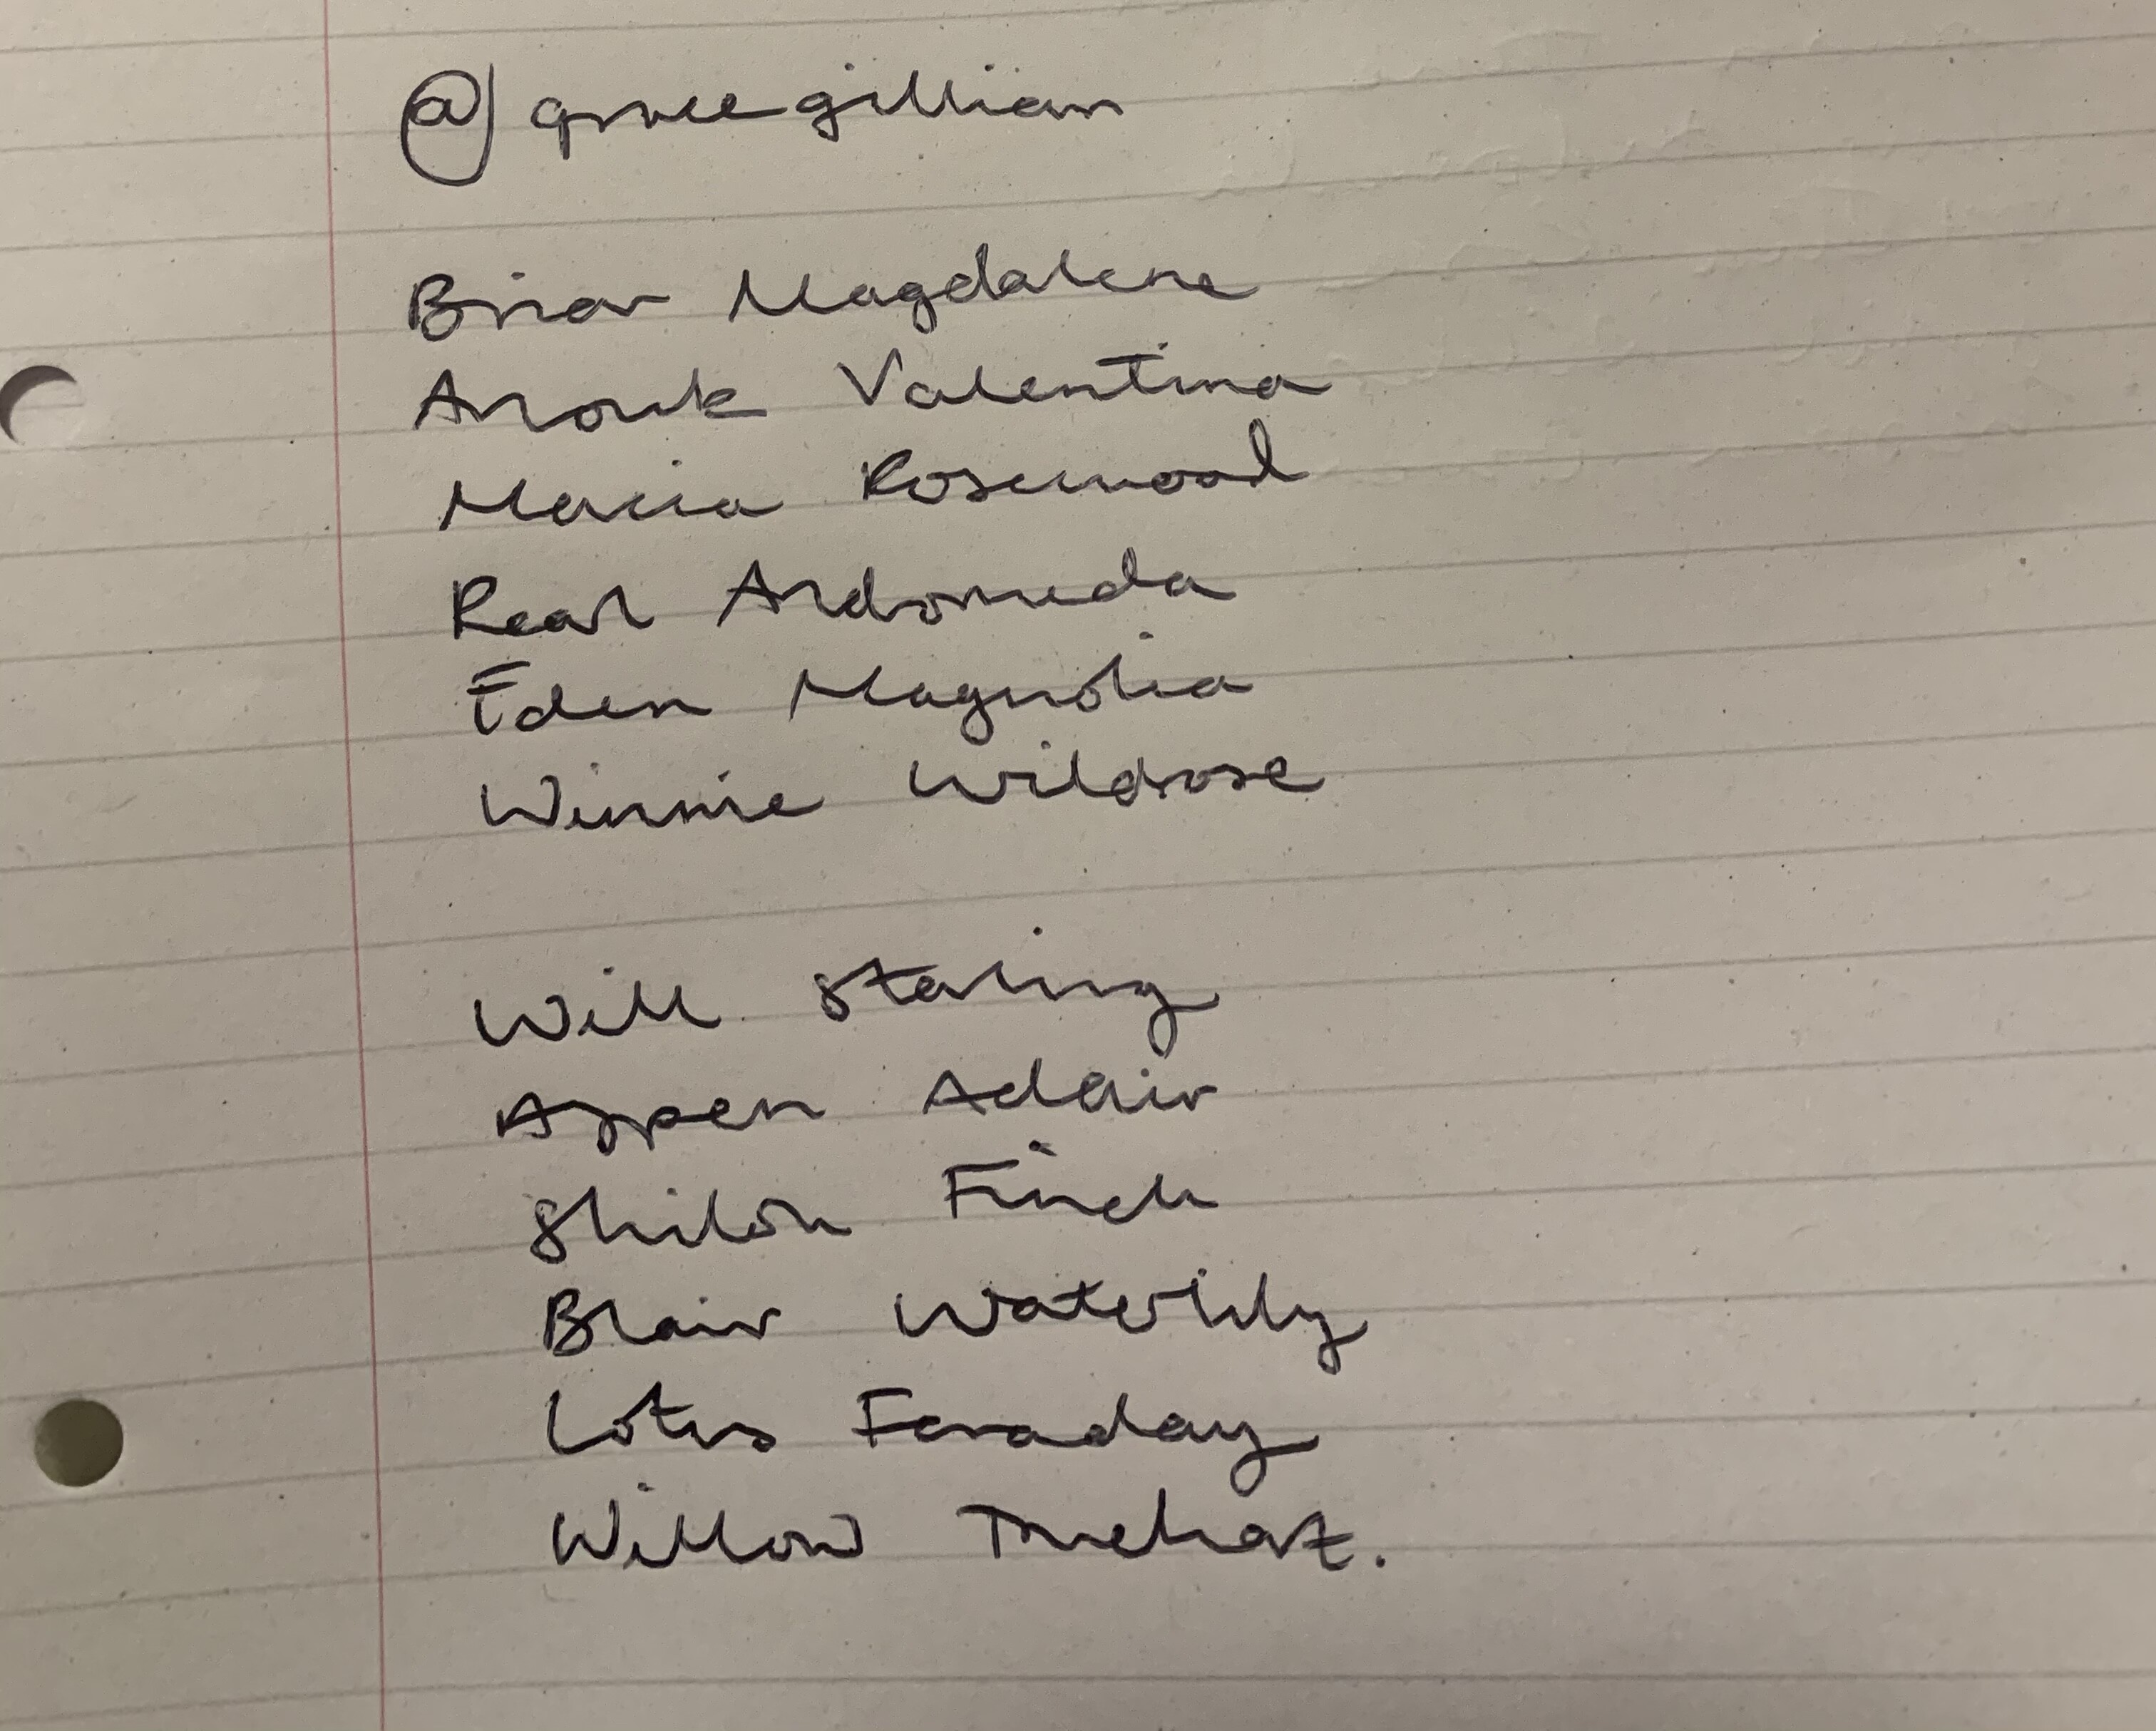 @gracegillian
Briar Magdalene
Anouk Valentina
Maria Rosewood
Andromeda
Eden Magnolia
Winnie Wildrose
Will Starling
Aspen Adair
Shiloh Finch
Blair Waterlily
Lotus Faraday
Willow